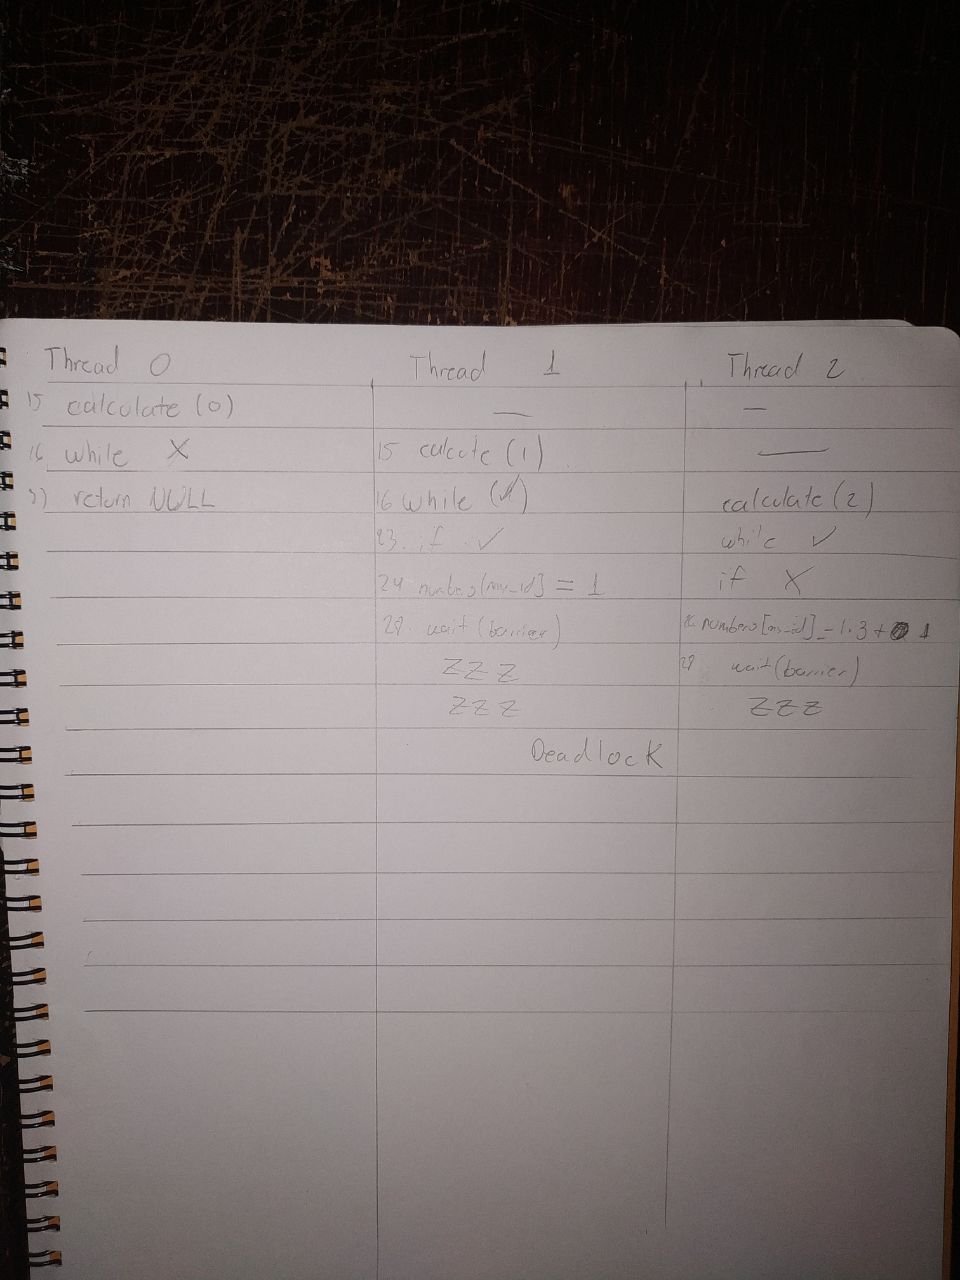 Thread 0 Thread 1 Thread 2
15 calculate (0) — —
16 while X 15 calcute (1) —
return NULL 16 while (✓) calculate (2)
23. if ✓ while ✓
24 numbers[my_id] = 1 if X
28. wait (barrier) numbers[my_id] = 1·3 + 1
ZZZ 28 wait (barrier)
ZZZ ZZZ
Deadlock